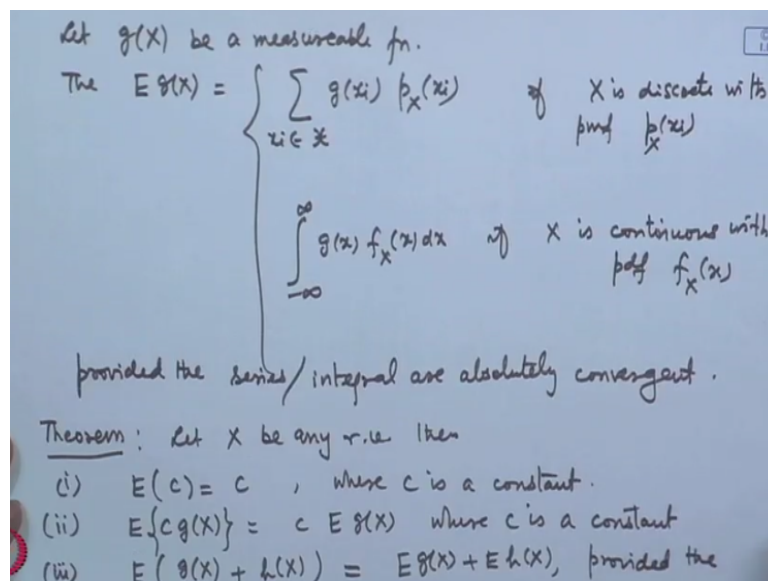 Let g(X) be a measureable fn.
The E g(X) = { ∑ g(xi) p_X(xi) if X is discrete with
xi ∈ X pmf p_X(xi)
∫_{-∞}^{∞} g(x) f_X(x) dx if X is continuous with
pdf f_X(x)
provided the series/integral are absolutely convergent.
Theorem : Let X be any r.v. then
(i) E(c) = c , where c is a constant.
(ii) E{c g(X)} = c E g(X) where c is a constant
(iii) E( g(X) + h(X) ) = E g(X) + E h(X), provided the